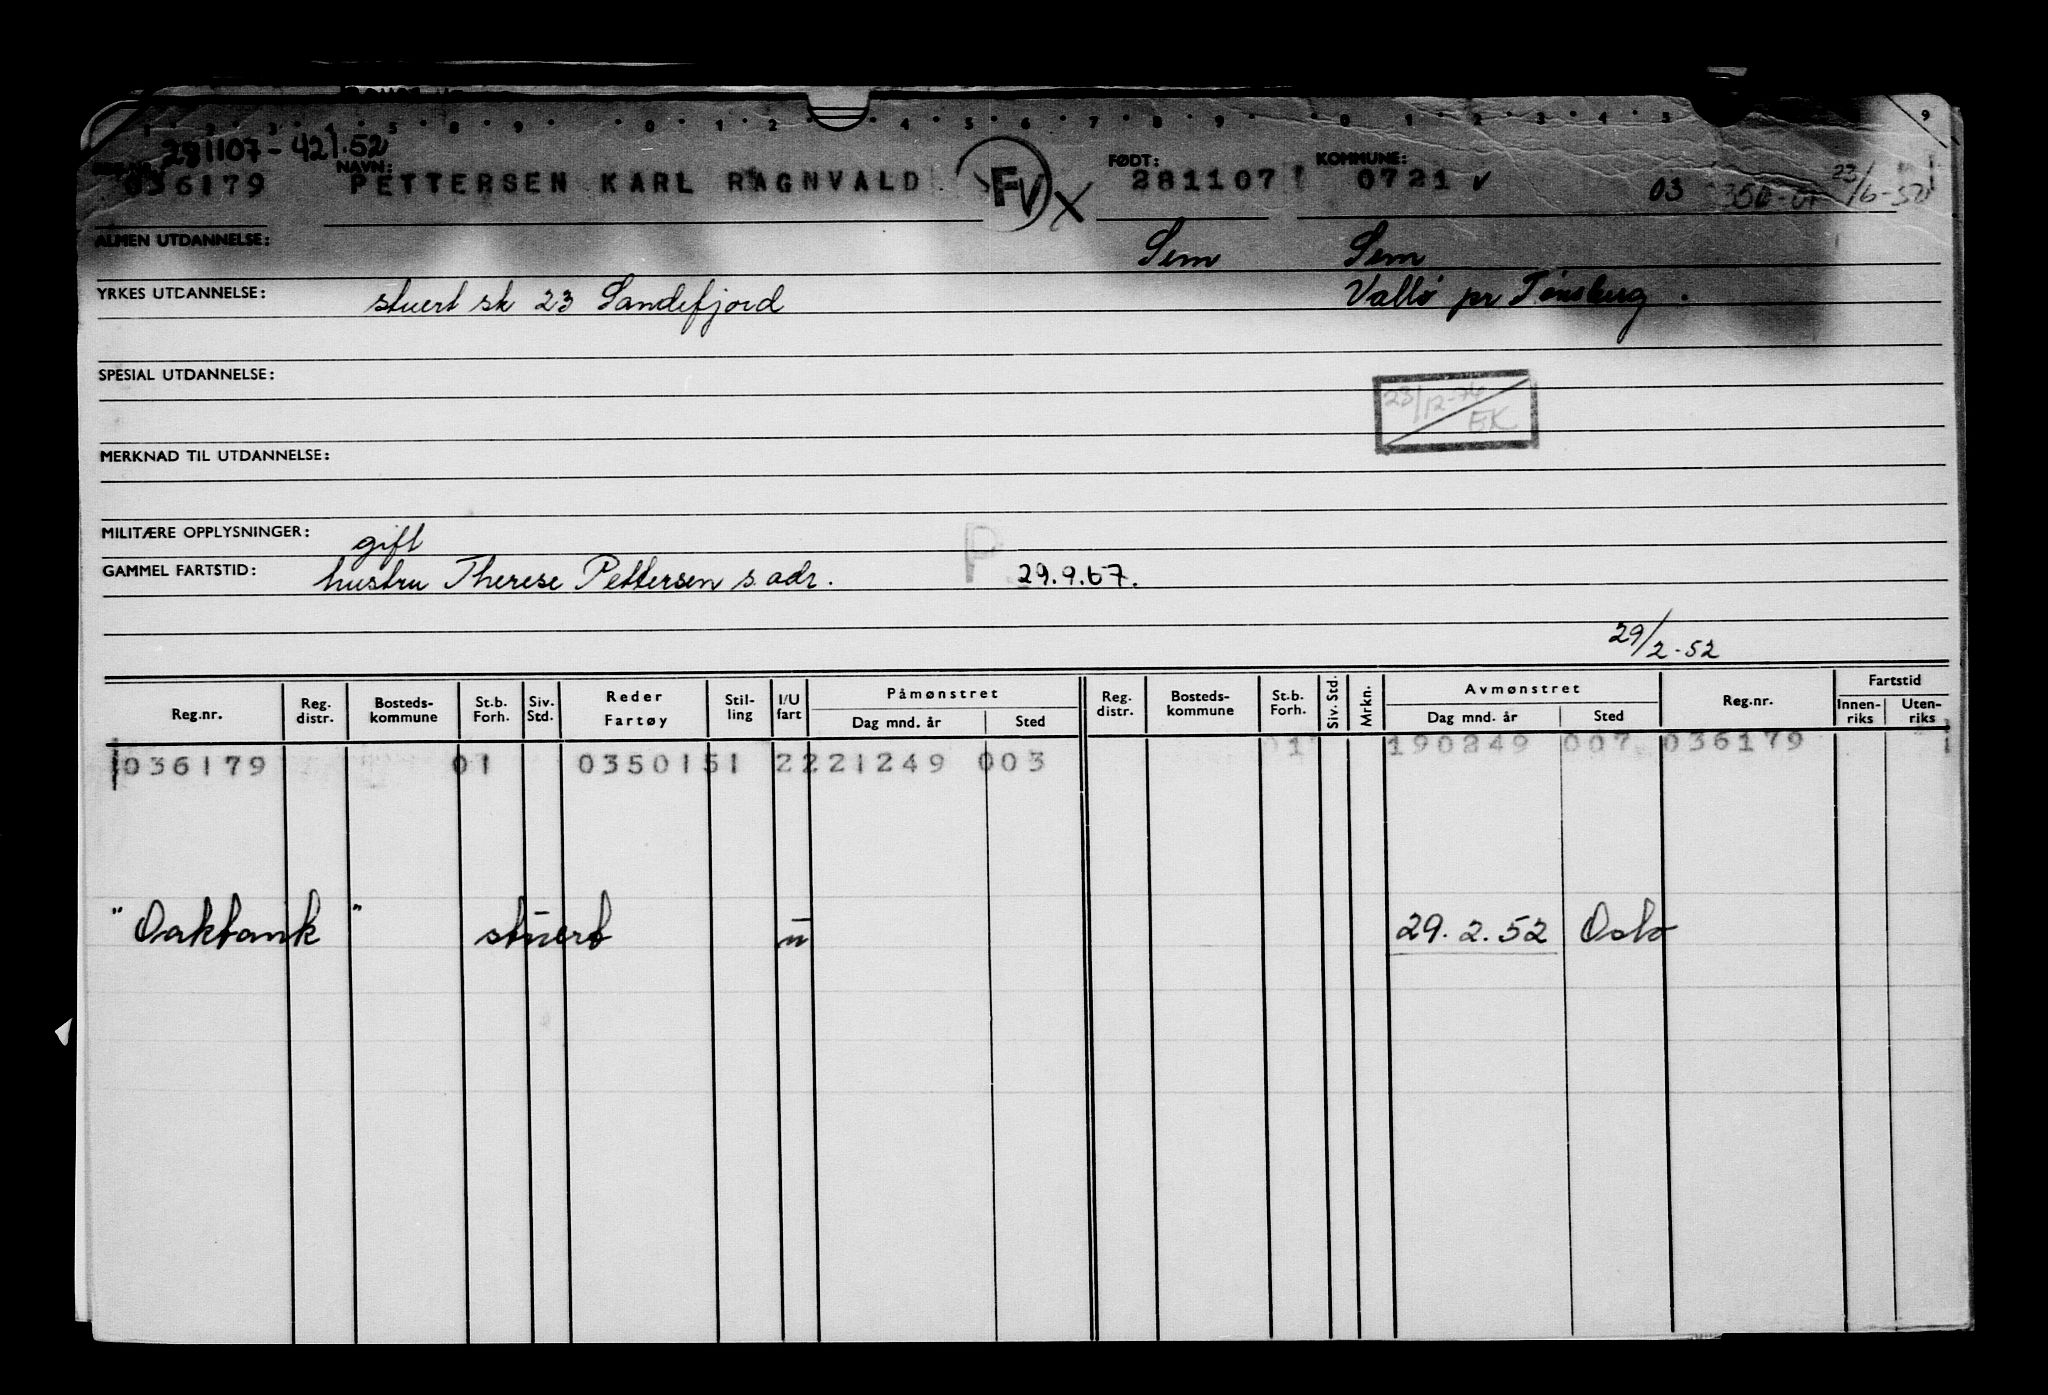 281107-421.52
NAVN: FØDT: KOMMUNE:
036179 PETTERSEN KARL RAGNVALD FV X 281107 0721 ✓ 03 23/6-52
ALMEN UTDANNELSE: Sem Sem
YRKES UTDANNELSE: stuert sk 23 Sandefjord Vallø pr Tønsberg.
SPESIAL UTDANNELSE:
23/12-74 EK
MERKNAD TIL UTDANNELSE:
MILITÆRE OPPLYSNINGER: gift P
GAMMEL FARTSTID: hustru Therese Pettersen s. adr. 29.9.67.
29/2-52
Reg.nr. Reg. distr. Bosteds-kommune St.b. Forh. Siv. Std. Reder Fartøy Stil-ling I/U fart Påmønstret Dag mnd. år Sted Reg. distr. Bosteds-kommune St.b. Forh. Siv. Std. Mrkn. Avmønstret Dag mnd. år Sted Reg.nr. Fartstid Innen-riks Uten-riks
01 190249 007 036179
036179 01 0350151 2221249 003
"Oakbank" stuert u 29.2.52 Oslo